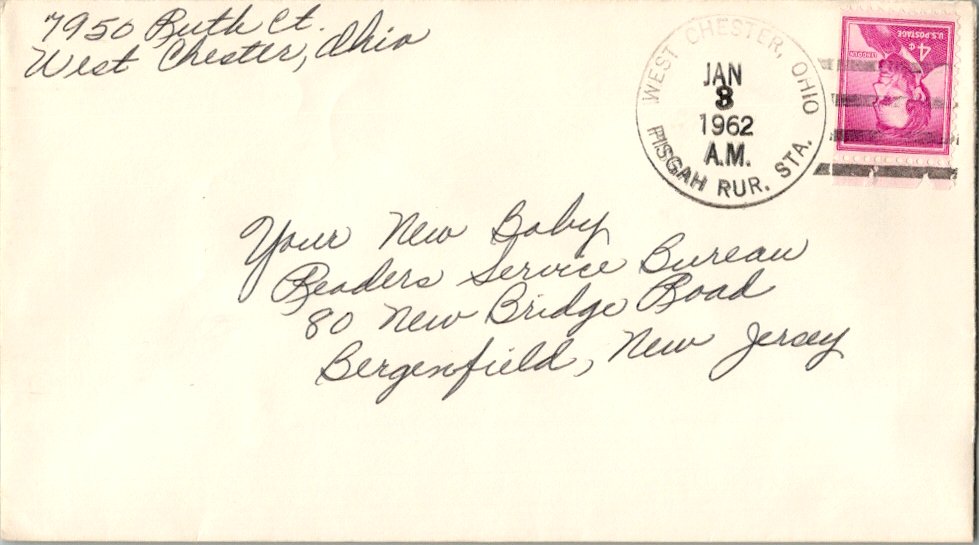 7950 Ruth Ct.
West Chester, Ohio
WEST CHESTER, OHIO
JAN
3
1962
A.M.
PISGAH RUR. STA.
U.S. POSTAGE
4¢
LINCOLN
Your New Baby
Readers Service Bureau
80 New Bridge Road
Bergenfield, New Jersey